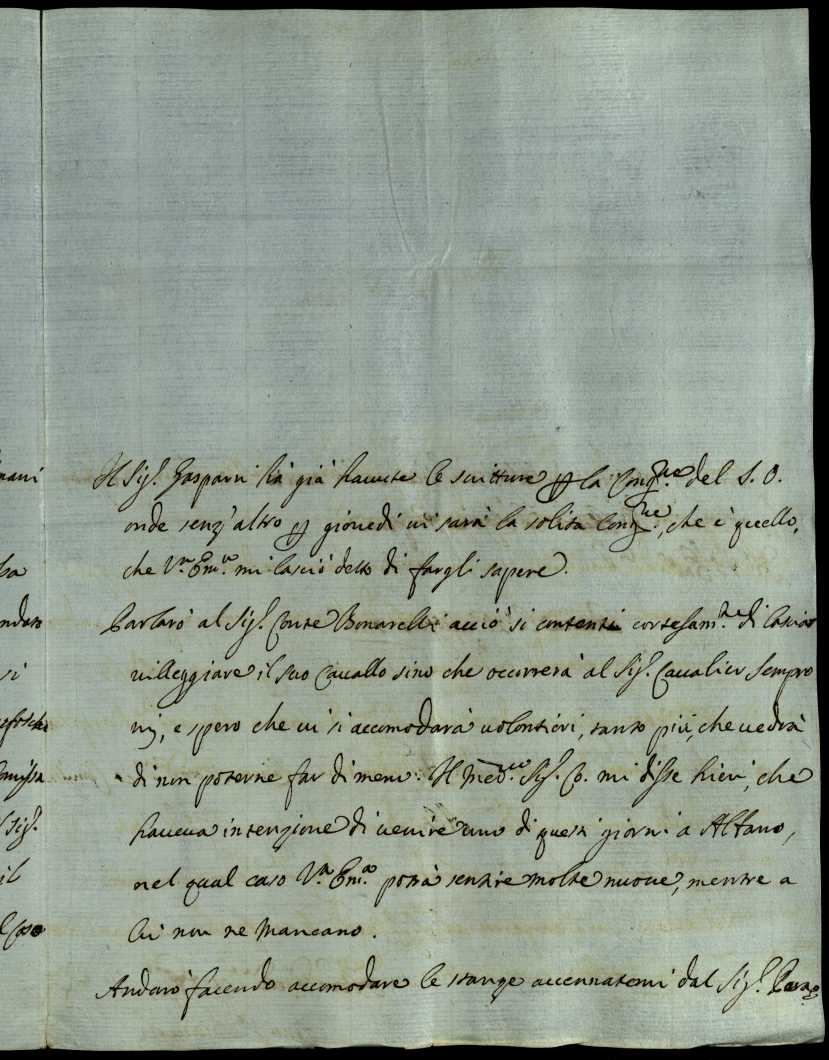 Il Sig.r Gasparri hà già havute le scritture p la Cong.ne del S. O.
onde senz'altro p giovedì vi sarà la solita Cong.ne, che è quello,
che V.ra Em.za mi lasciò detto di fargli sapere.
Parlarò al Sig.r Conte Bonarelli acciò si contenti cortesam.te di lasciar
villeggiare il suo Cavallo sino che occorrerà al Sig.r Cavalier Sempro
nij, e spero che vi si accomodarà volontieri, tanto più, che vedrà
di non poterne far di meno. Il Med.mo Sig.r Co. mi disse hieri, che
haveva intenzione di venire uno di questi giorni a Albano,
nel qual caso V.ra Em.za potrà sentire molte nuove, mentre a
lui non ne mancano.
Andarò facendo accomodare le stanze accennatemi dal Sig.r